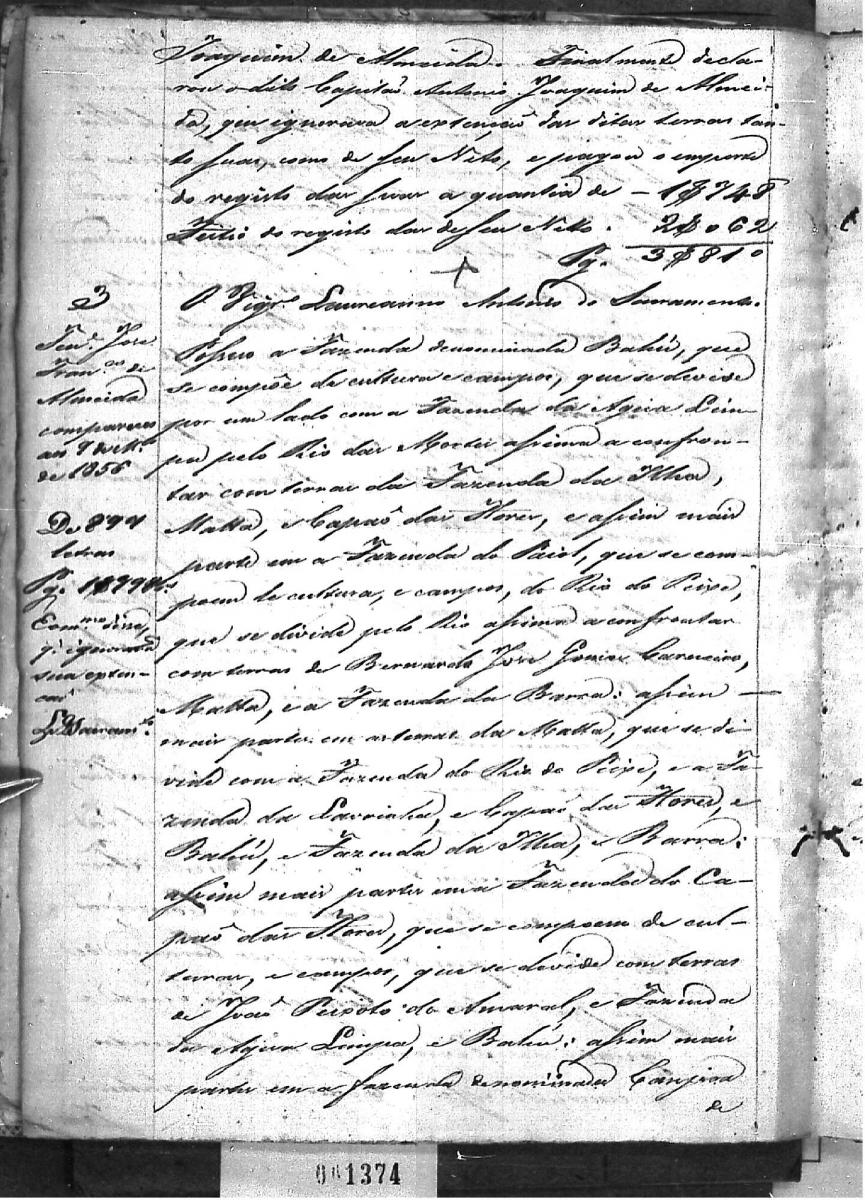 Joaquim de Almeida. Finalmente decla-
rou o dito Capitaõ Antonio Joaquim de Almei-
da, que ignorava a extençaõ das ditas terras tan-
to suas, como de seu Neto, e pagou o emporte
do registo das suas a quantia de - 1$748
Feitio do registo das de seu Neto. 2$062
Pg. 3$810
O Vigr.º Laureanno Antonio do Sacramento.
3
Ten.e José
Fran.co de
Almeida
compareceo
aos
de 1856
De 899
letras
Pg. 1$798
Com.mo disse,
q.' ignorava
sua exten-
çaõ
Possuo a Fazenda denominada Bahú, que
se compõe de cultura e campos, que se devide
por um lado com a Fazenda da Agoa Lim-
pa pelo Rio das Mortes assima a confron-
tar com terras da Fazenda da Ilha,
Matta, e Capaõ das Flores, e assim mais
parte em a Fazenda do Paiol, que se com-
poem de cultura, e campos, do Rio do Peixe,
que se divide pelo Rio assima a confrontar
com terras de Bernardo José Gomes Carneiro,
Matta, e a Fazenda da Barra: assim
mais partes em as terras da Matta, que se di-
vide com a Fazenda do Rio do Peixe, e a Fa-
zenda da Lavrinha, e Capaõ das Flores, e
Bahú, e Fazenda da Ilha, e Barra:
assim mais partes em a Fazenda do Ca-
paõ das Flores, que se compoem de cul-
turas, e campos, que se devide com terras
de Joaõ Peixoto do Amaral, e Fazenda
da Agoa Limpa, e Bahú: assim mais
partes em a fazenda denominada Canjica
de
001374